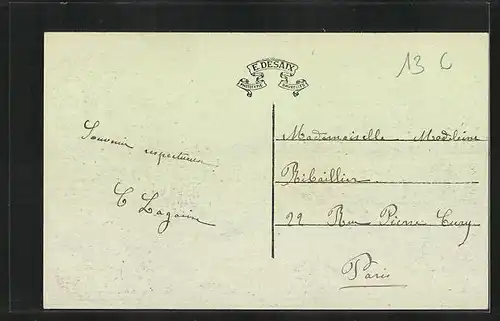 E. DESAIX
13 C
Souvenir respectueux
C Lagarin
Mademoiselle Madeleine
Ribaillier
22 Rue Pierre Cury
Paris